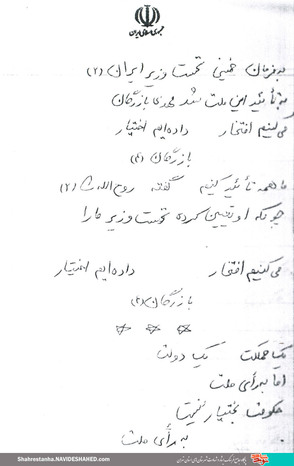 جمهوری اسلامی ایران
به فرمان خمینی نخست وزیر ایران (۲)
به تأئید این ملت شد مهدی بازرگان
می کنیم افتخار داده ایم اختیار
بازرگان (۴)
ما همه تأئید کنیم گفته روح الله را (۲)
چونکه او تعیین کرده نخست وزیر ما را
می کنیم افتخار داده ایم اختیار
بازرگان (۴)
یک مملکت یک دولت
اما به رأی ملت
حکومت بختیار نیست
به رأی ملت
Shahrestanha.NAVIDESHAHED.com